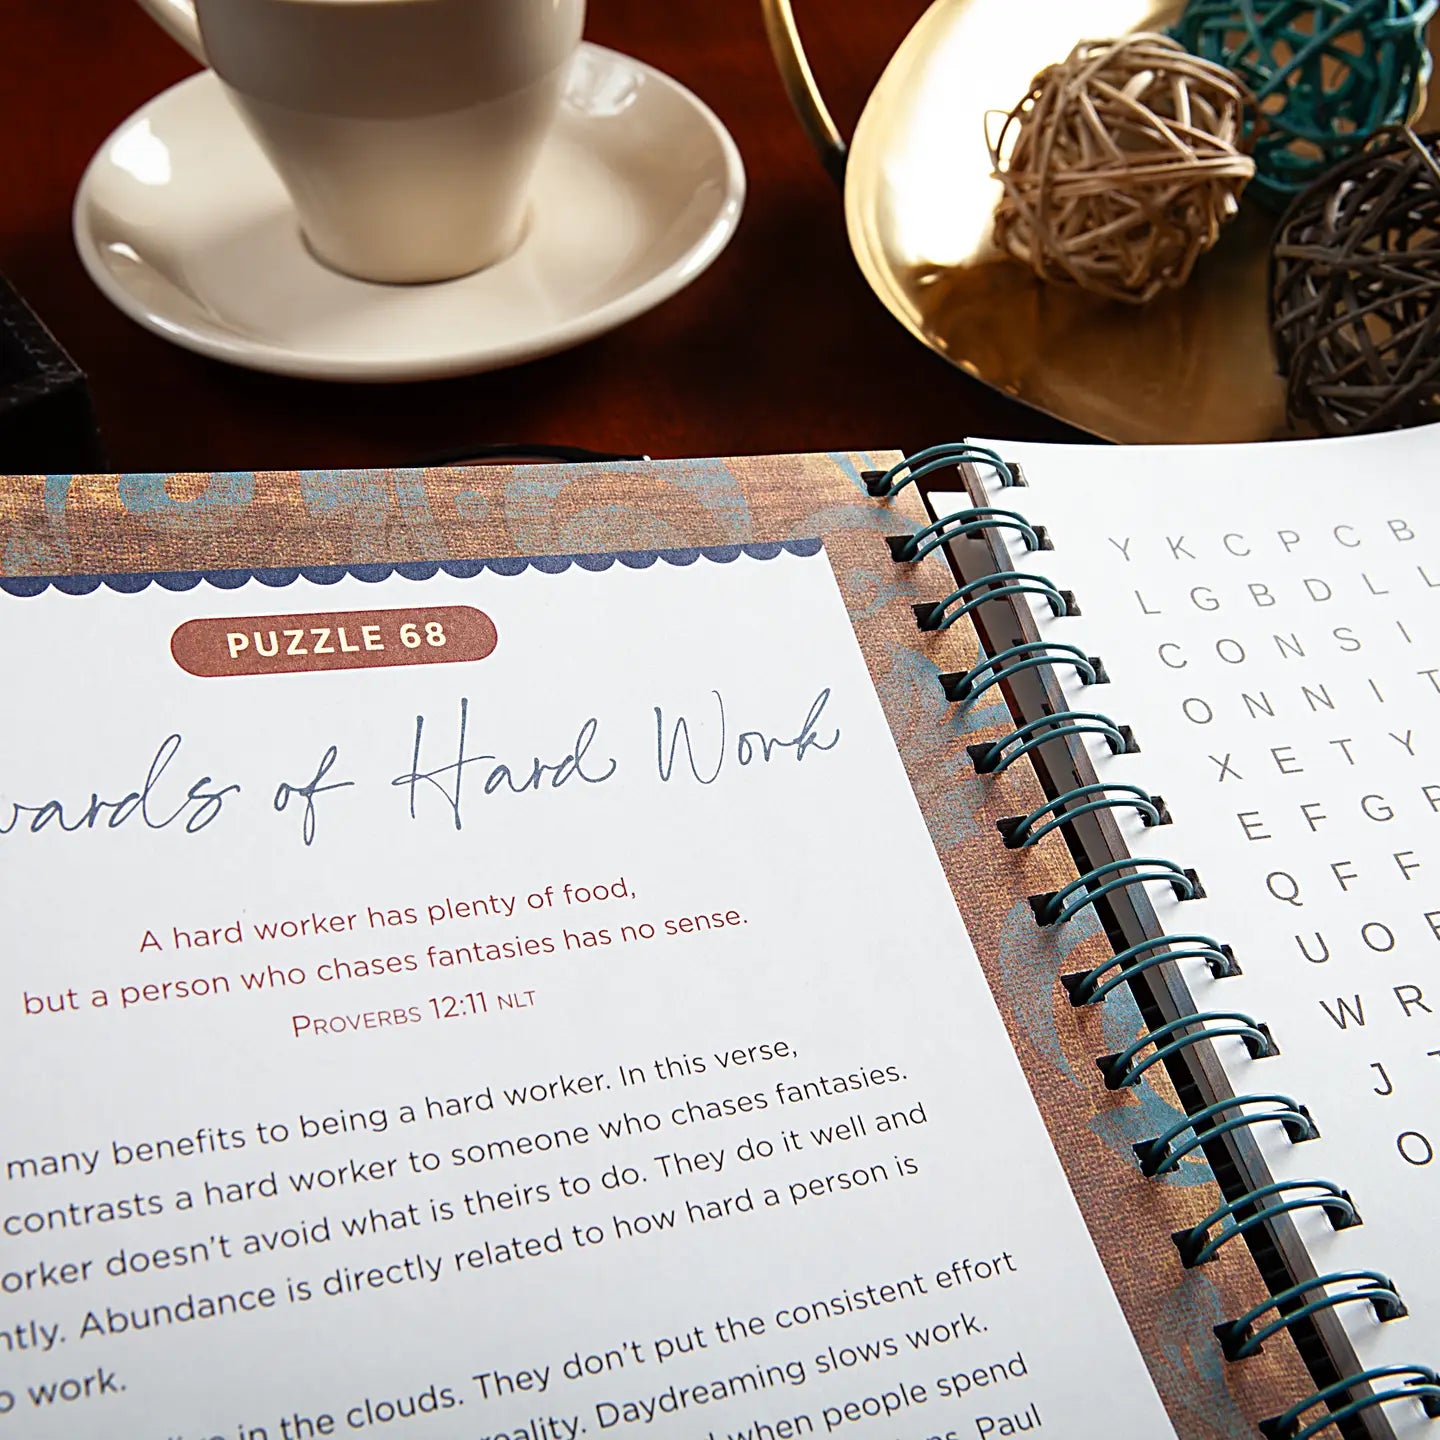 PUZZLE 68
of Hard Work
A hard worker has plenty of food,
but a person who chases fantasies has no sense.
PROVERBS 12:11 NLT
many benefits to being a hard worker. In this verse,
contrasts a hard worker to someone who chases fantasies.
doesn't avoid what is theirs to do. They do it well and
Abundance is directly related to how hard a person is
work.
in the clouds. They don't put the consistent effort
Daydreaming slows work.
when people spend
Paul
Y K C P C B
L G B D L L
C O N S I
O N N I T
X E T Y
E F G
Q F F
U O
W R
J
O